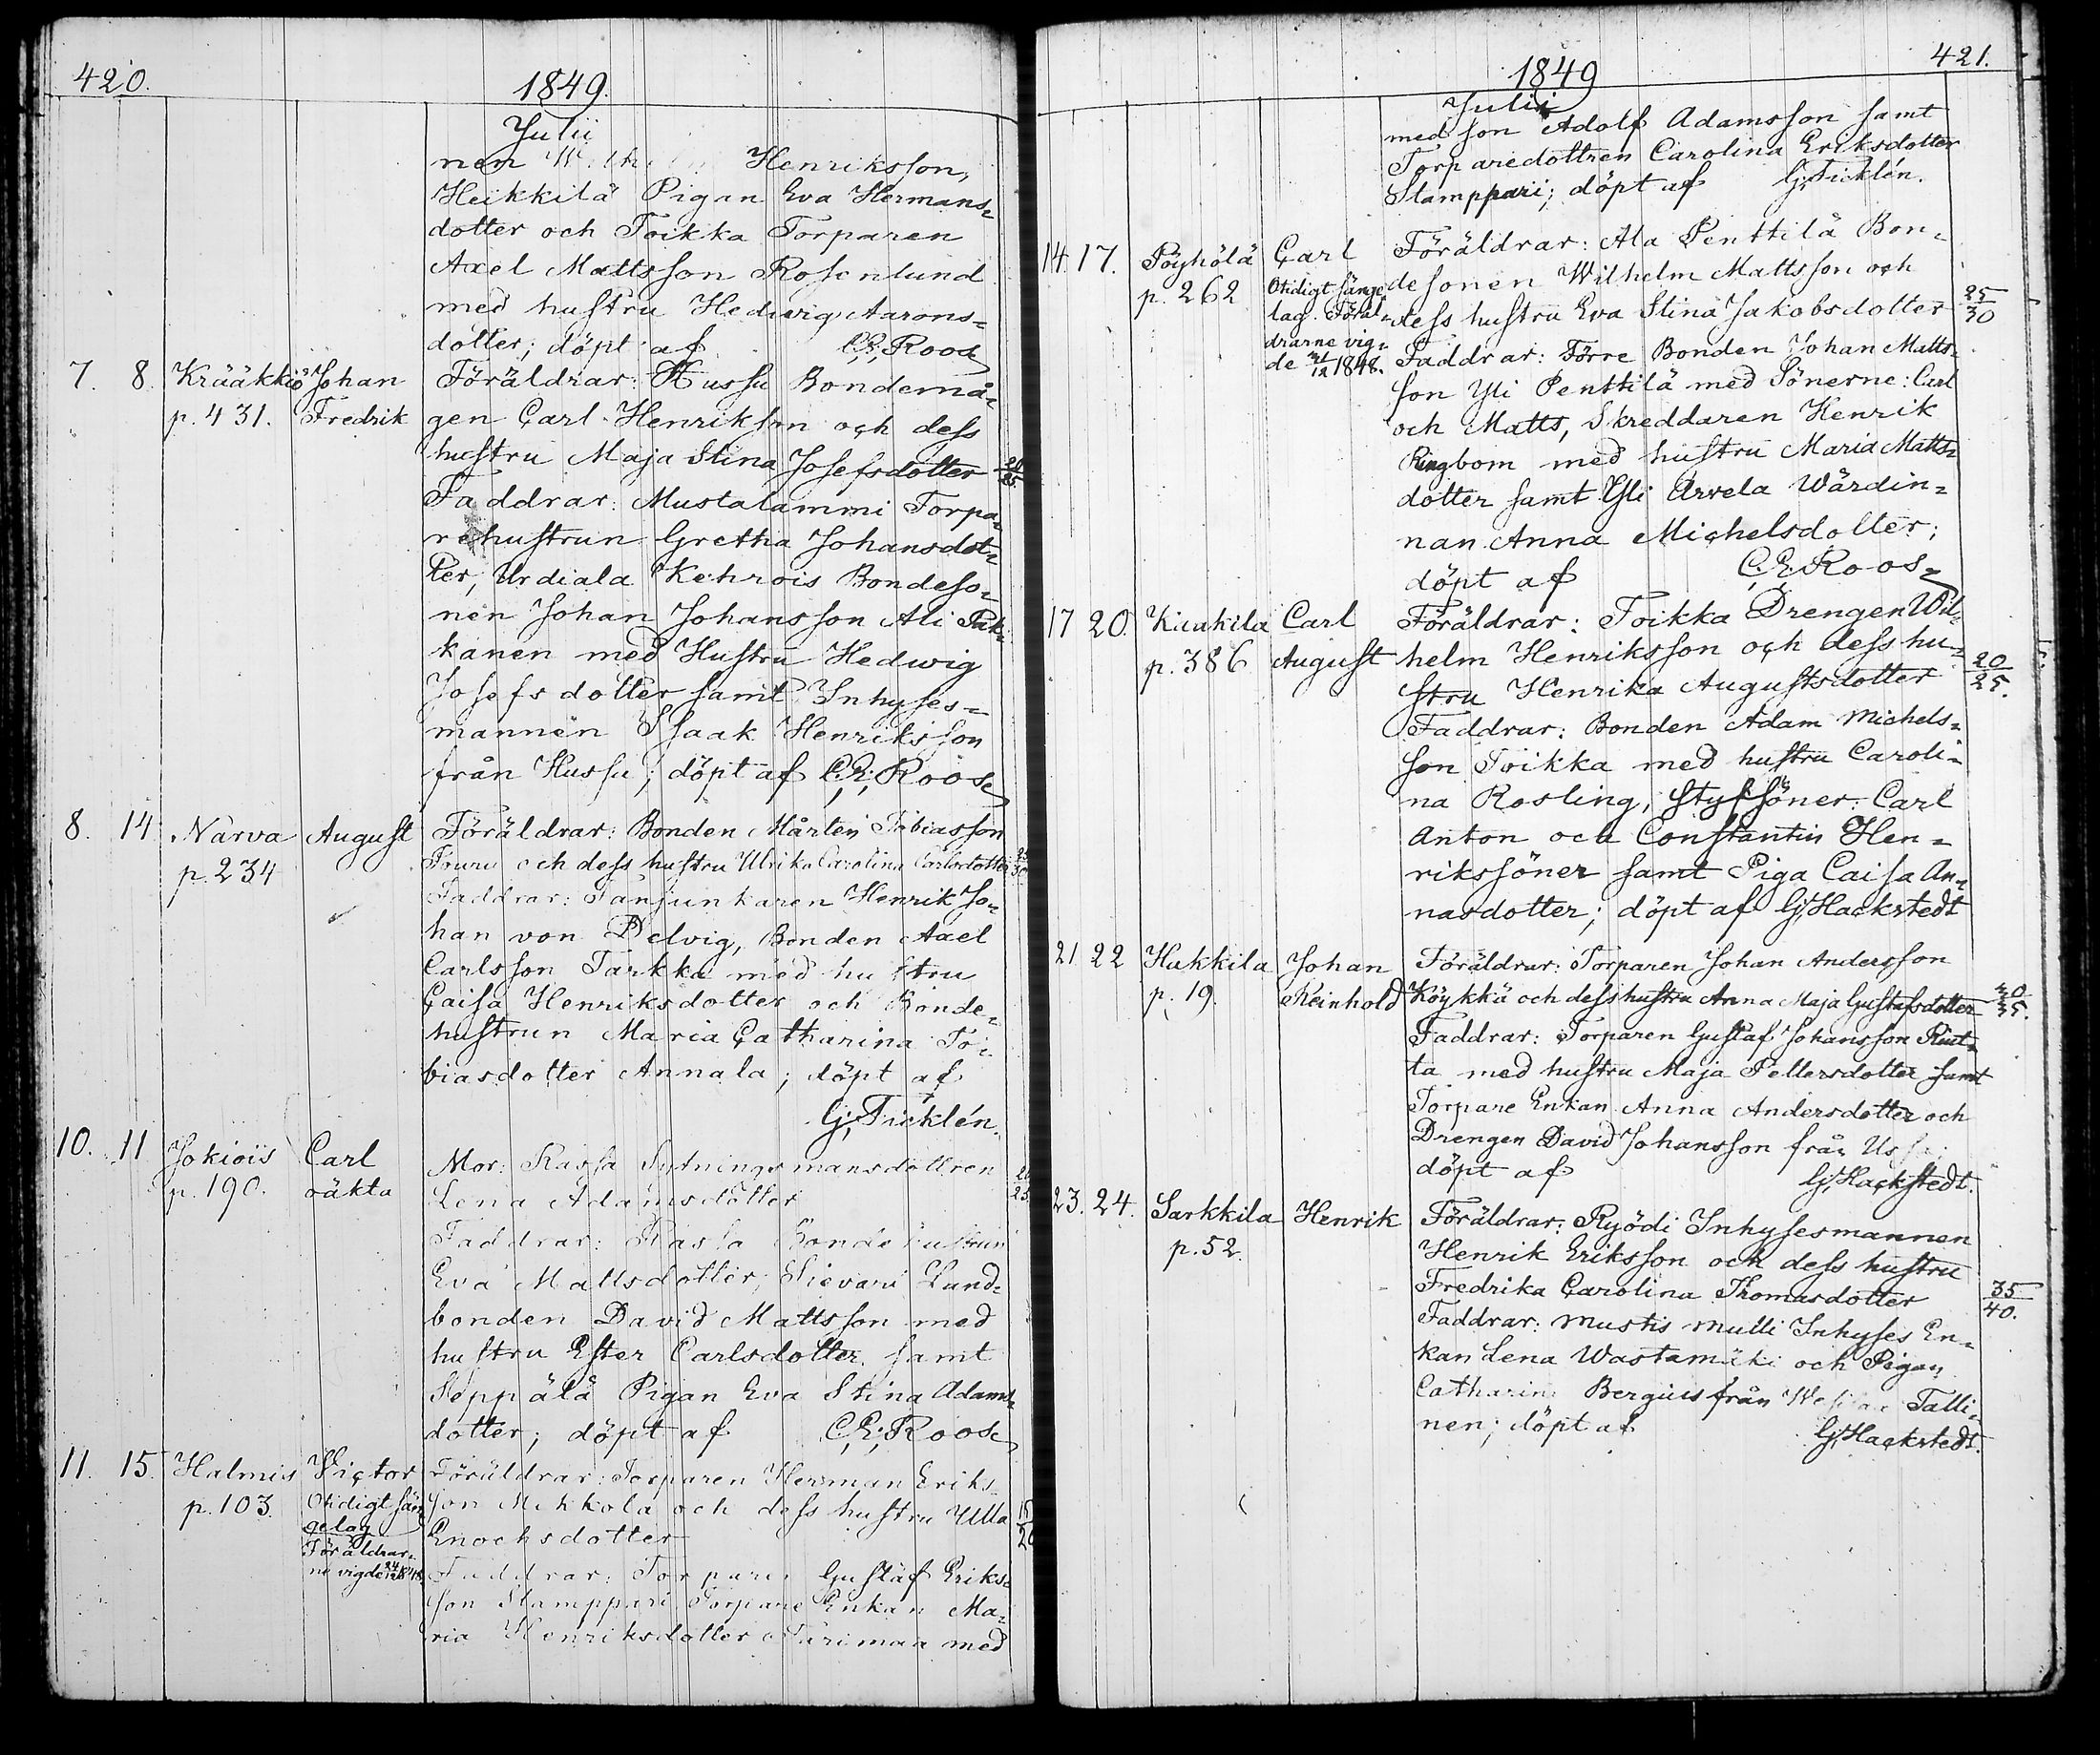 420.
1849.
Julii
nen Henriksson,
Heikkilä Pigan Eva Hermans=
dotter och Toikka Torparen
Axel Mattsson Rosenlund
med hustru Hedwig Aarons=
dotter; döpt af C.E. Roos
7. 8. Krääkkiö Johan Föräldrar: Hussu Bondemå=
p. 431. Fredrik gen Carl Henriksson och dess
hustru Maja Stina Josefsdotter
Faddrar: Mustalammi Torpa=
rehustrun Gretha Johansdot=
ter, Urdiala Kehrois Bondeso=
nen Johan Johansson Ali Pak=
kanen med Hustru Hedwig
Josefsdotter samt Inhyses=
mannen Isaak Henriksson
från Hussu; döpt af C.E. Roos
8. 14 Narva August Föräldrar: Bonden Mårten Tobiasson
p. 234 Touru och dess hustru Ulrika Carolina Carlsdotter
Faddrar: Fanjunkaren Henrik Jo=
han von Delvig, Bonden Axel
Carlsson Tarkka med hustru
Caisa Henriksdotter och Bonde=
hustrun Maria Catharina To=
biasdotter Annala; döpt af
G. Ticklén.
10. 11 Jokiois Carl Mor: Rassa Sytningsmansdottren
p. 190. oäkta Lena Adamsdotter
Faddrar: Rassa Bondehustrun
Eva Mattsdotter, Sievari Land=
bonden David Mattsson med
hustru Ester Carlsdotter samt
Seppälä Pigan Eva Stina Adams=
dotter; döpt af C.E. Roos
11. 15. Halmis Victor Föräldrar: Torparen Herman Eriks=
p. 103. Otidigt sän= son Mikkola och dess hustru Ulla
gelag Enochsdotter
Föräldrar=
ne vigde Faddrar: Torparen Gustaf Eriks=
son Stamppari Torpare Enkan Ma=
ria Henriksdotter med
421.
1849
Julii
med son Adolf Adamsson samt
Torparedottren Carolina Eriksdotter
Stamppari; döpt af G. Ticklén.
14. 17. Pöyhölä Carl Föräldrar: Ala Penttilä Bon=
p. 262 Otidigt sänge desonen Wilhelm Mattsson och
lag. Föräl= dess hustru Eva Stina Jakobsdotter 25/30
drarne vig=
de 1848. Faddrar: Förre Bonden Johan Matts=
son Yli Penttilä med Sönerne: Carl
och Matts, Skreddaren Henrik
Ringbom med hustru Maria Matts=
dotter samt Yli Arvela Wärdin=
nan Anna Michelsdotter;
döpt af C.E. Roos
17 20. Kiukila Carl Föräldrar: Toikka Drengen Wil=
p. 386 August helm Henriksson och dess hu=
stru Henrika Augustsdotter 20/25.
Faddrar: Bonden Adam Michels=
son Toikka med hustru Caroli=
na Rosling, styfsöner: Carl
Anton och Constantin Hen=
rikssöner samt Piga Caisa An=
nasdotter; döpt af G. Hackstedt
21 22 Hukkila Johan Föräldrar: Torparen Johan Andersson
p. 19. Reinhold Köykkä och dess hustru Anna Maja Gustafsdotter
Faddrar: Torparen Gustaf Johansson Rint=
ta med hustru Maja Pettersdotter samt
Torpare Enkan Anna Andersdotter och
Drengen David Johansson från
döpt af G. Hackstedt.
23. 24. Sarkkila Henrik Föräldrar: Ryödi Inhysesmannen
p. 52. Henrik Eriksson och dess hustru
Fredrika Carolina Thomasdotter 35/40.
Faddrar: Mustis Mulli Inhyses En=
kan Lena Wastamäki och Pigan
Catharina Bergius från Talli=
nen; döpt af G. Hackstedt.